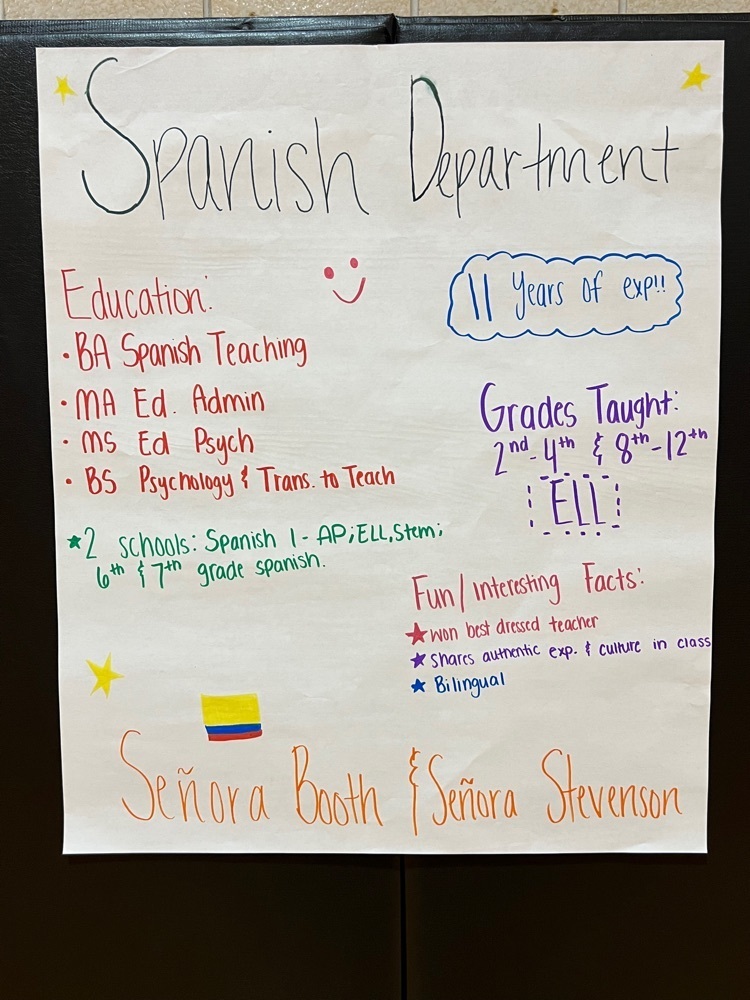 Spanish Department
Education:
• BA Spanish Teaching
• MA Ed. Admin
• MS Ed Psych
• BS Psychology & Trans. to Teach
★2 schools: Spanish 1 - AP; ELL, Stem;
6th & 7th grade spanish.
11 years of exp!!
Grades Taught:
2nd-4th & 8th-12th
ELL
Fun/Interesting Facts:
★ won best dressed teacher
★ shares authentic exp. & culture in class
★ Bilingual
Señora Booth & Señora Stevenson